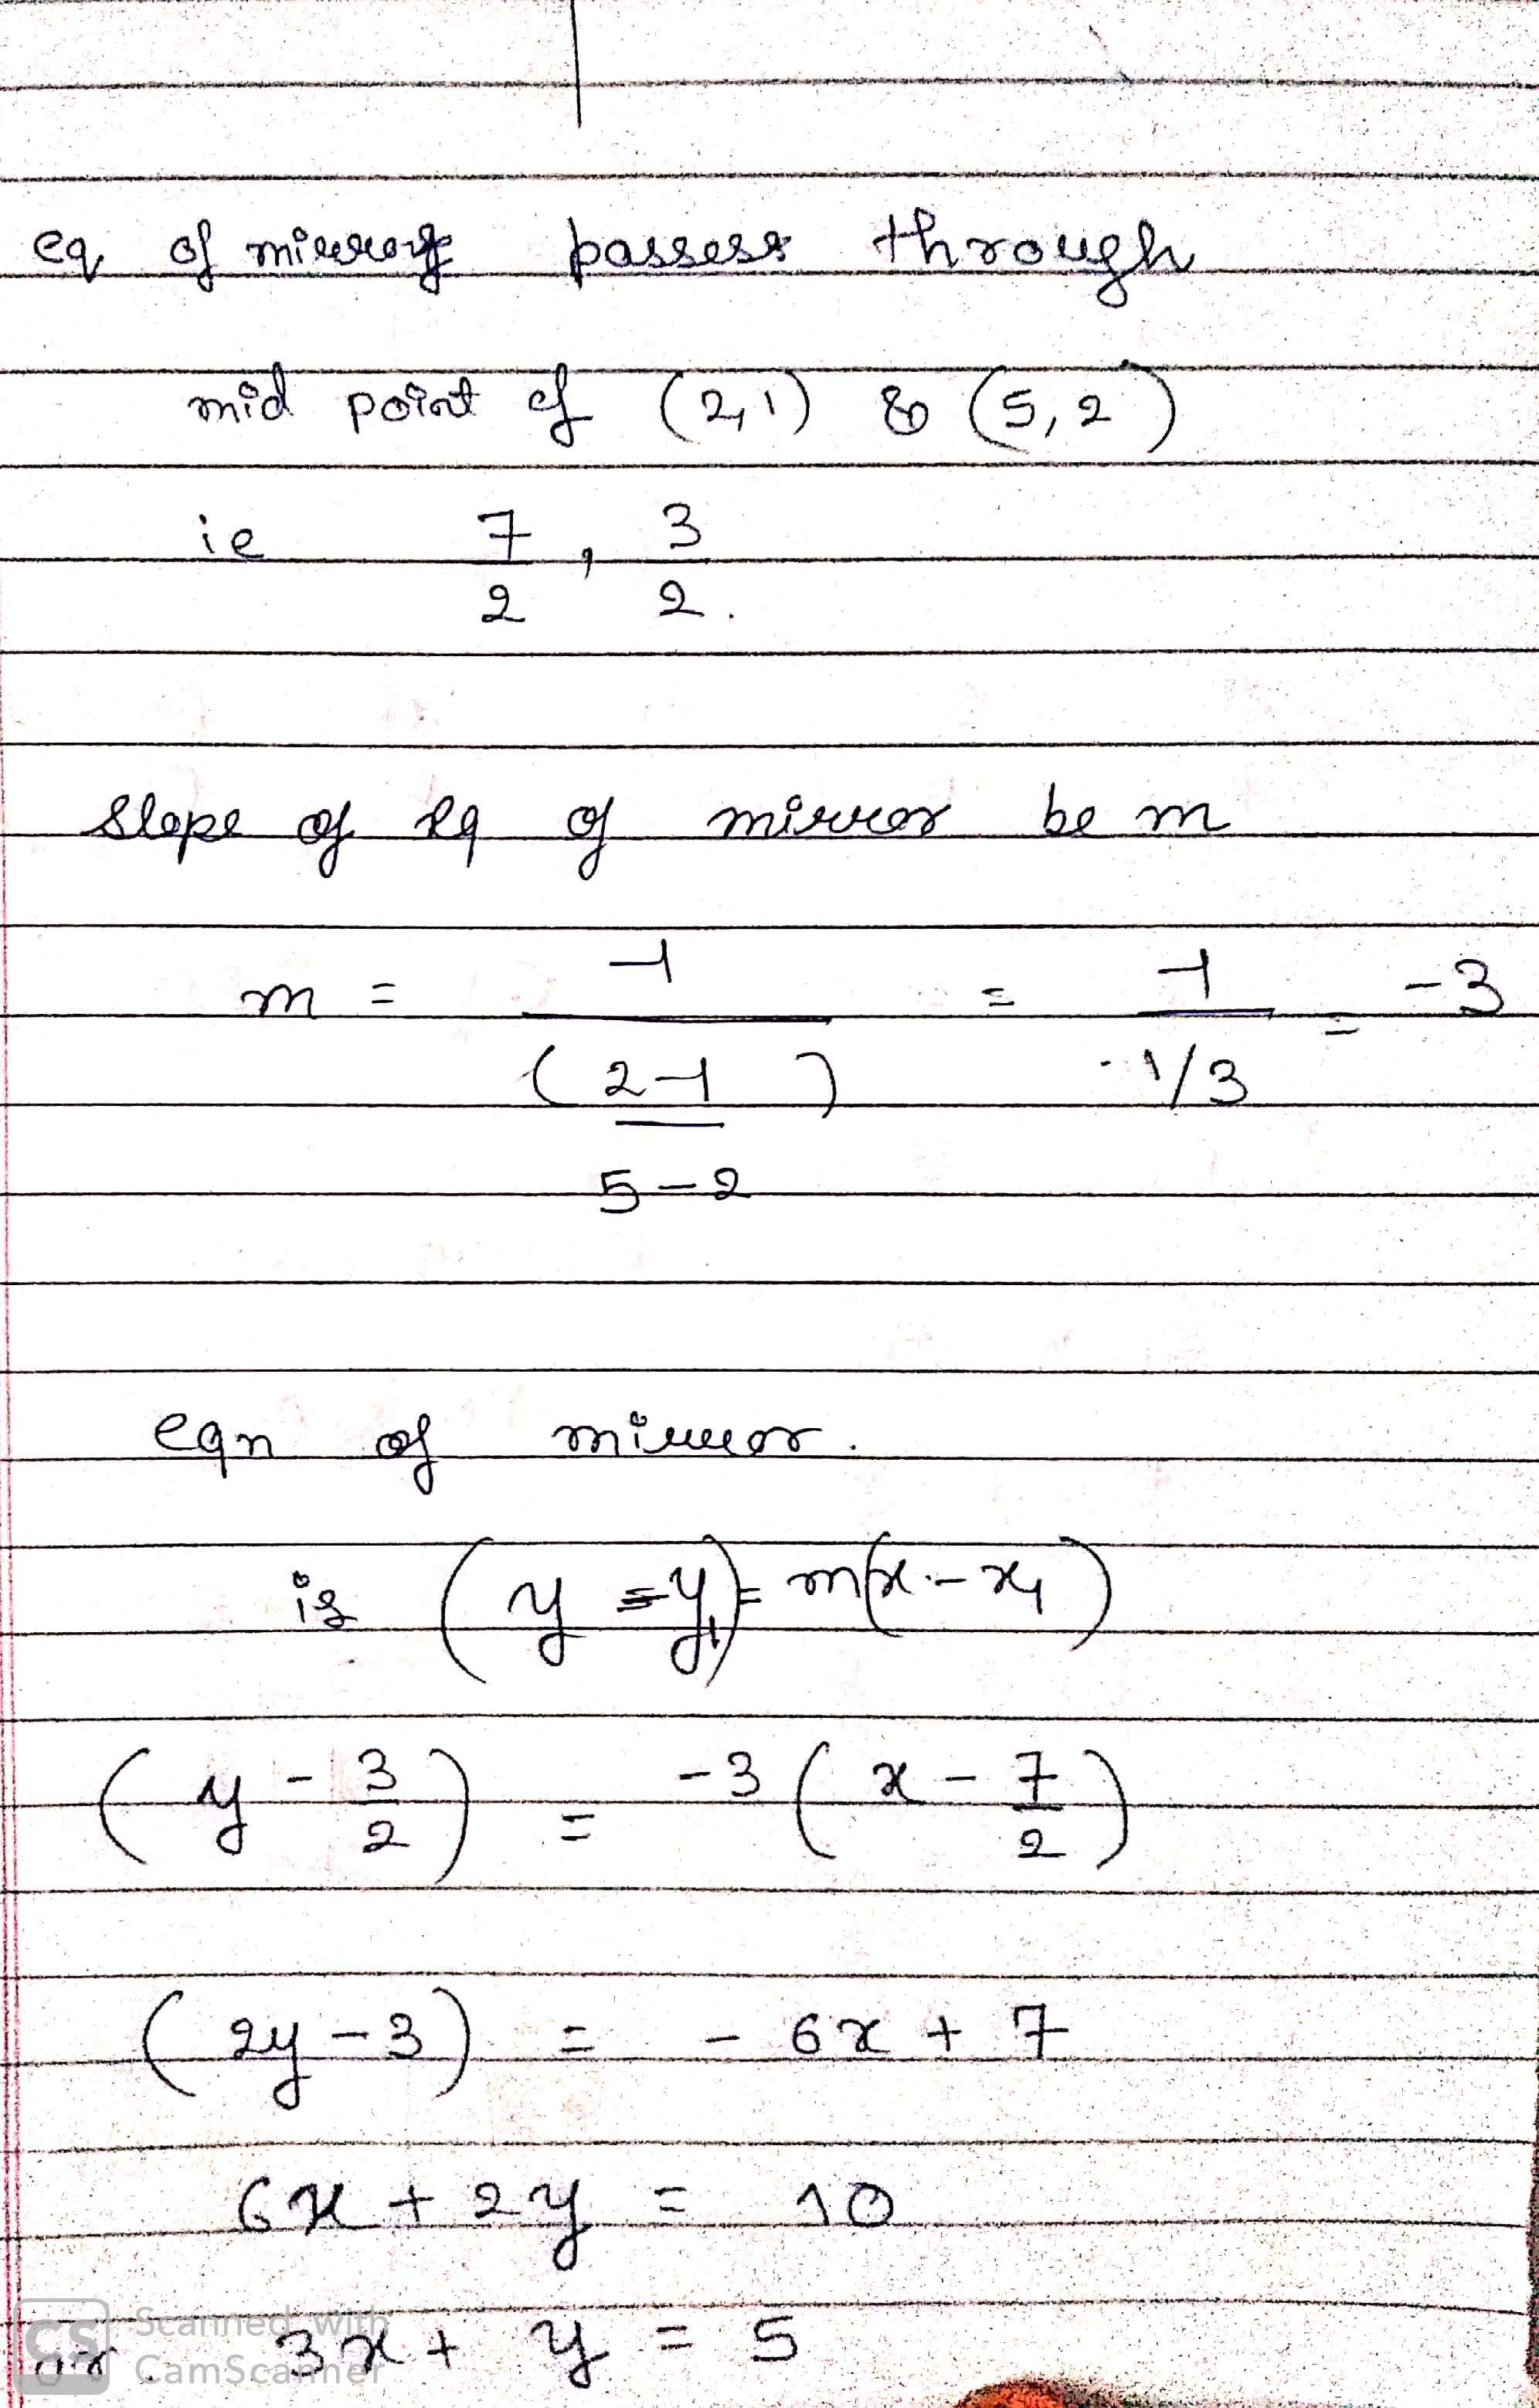 eq of mirror passess through
mid point of (2,1) & (5,2)
ie 7/2 , 3/2.
Slope of eq of mirror be m
m = -1/((2-1)/(5-2)) = -1/(1/3) = -3
eqn of mirror.
is (y - y₁) = m(x - x₁)
(y - 3/2) = -3 (x - 7/2)
(2y - 3) = - 6x + 7
6x + 2y = 10
or. 3x + y = 5
CS Scanned with
CamScanner